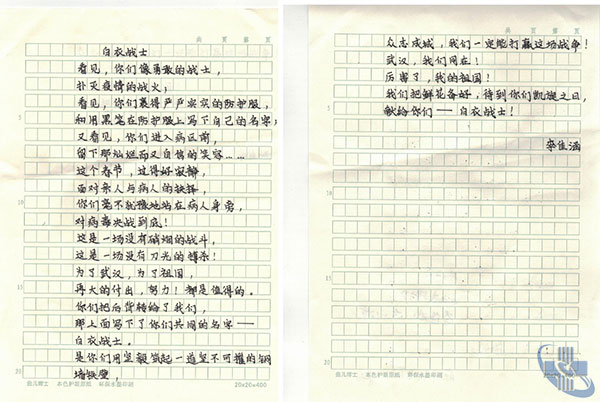 共 页 第 页
白衣战士
看见，你们像勇敢的战士，
扑灭疫情的战火；
看见，你们裹得严严实实的防护服，
和用黑笔在防护服上写下自己的名字；
又看见，你们进入病区前，
留下那灿烂而又自信的笑容……
这个春节，过得好寂静，
面对亲人与病人的抉择，
你们毫不犹豫地站在病人身旁，
对病毒决战到底！
这是一场没有硝烟的战斗，
这是一场没有刀光的搏杀！
为了武汉，为了祖国，
再大的付出、努力！都是值得的。
你们把后背转给了我们，
那上面写下了你们共同的名字——
白衣战士。
是你们用坚毅筑起一道坚不可摧的钢
墙铁壁，
5
10
15
20
本色护眼原纸 环保水墨印刷
20x20=400
共 页 第 页
众志成城，我们一定能打赢这场战争！
武汉，我们同在！
厉害了，我的祖国！
我们把鲜花备好，待到你们凯旋之日，
献给你们——白衣战士！
李佳涵
5
10
15
20
本色护眼原纸 环保水墨印刷